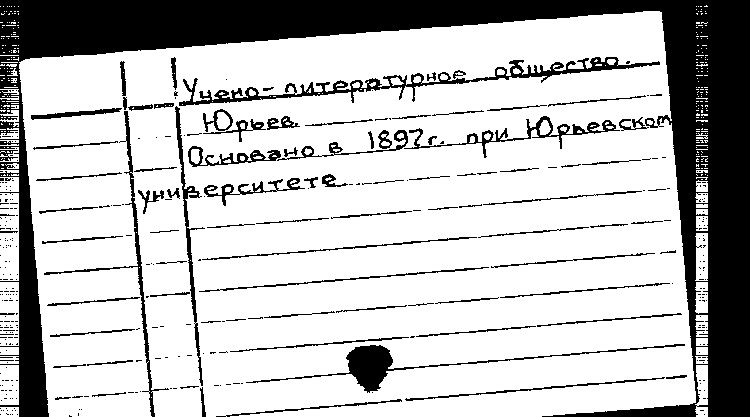 Учено-литературное общество.
Юрьев.
Основано в 1897г. при Юрьевском
университете.